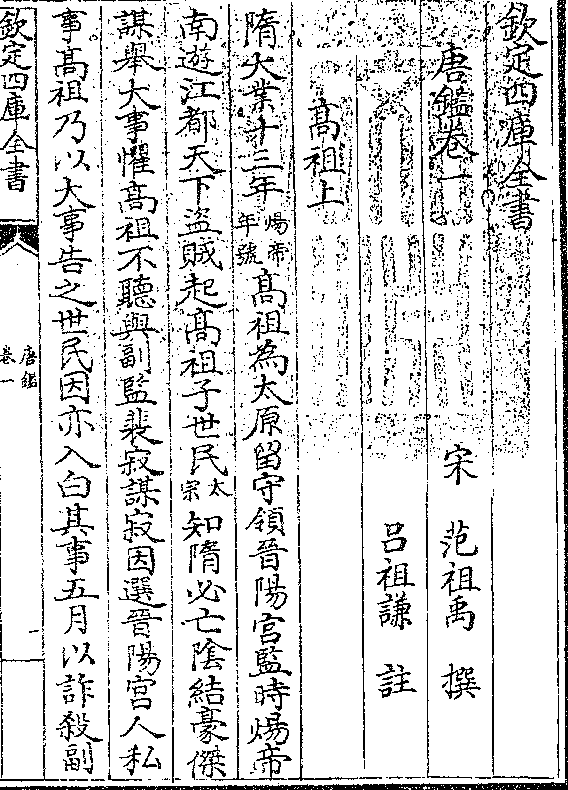 欽定四庫全書
唐鑑卷一　宋　范祖禹　撰
吕祖謙　註
髙祖上
隋大業十三年煬帝年號髙祖為太原留守領晉陽宫監時煬帝
南遊江都天下盜賊起髙祖子世民太宗知隋必亡陰結豪傑
謀舉大事懼髙祖不聽與副監裴寂謀寂因選晉陽宫人私
事髙祖乃以大事告之世民因亦入白其事五月以詐殺副
欽定四庫全書
唐鑑
卷一